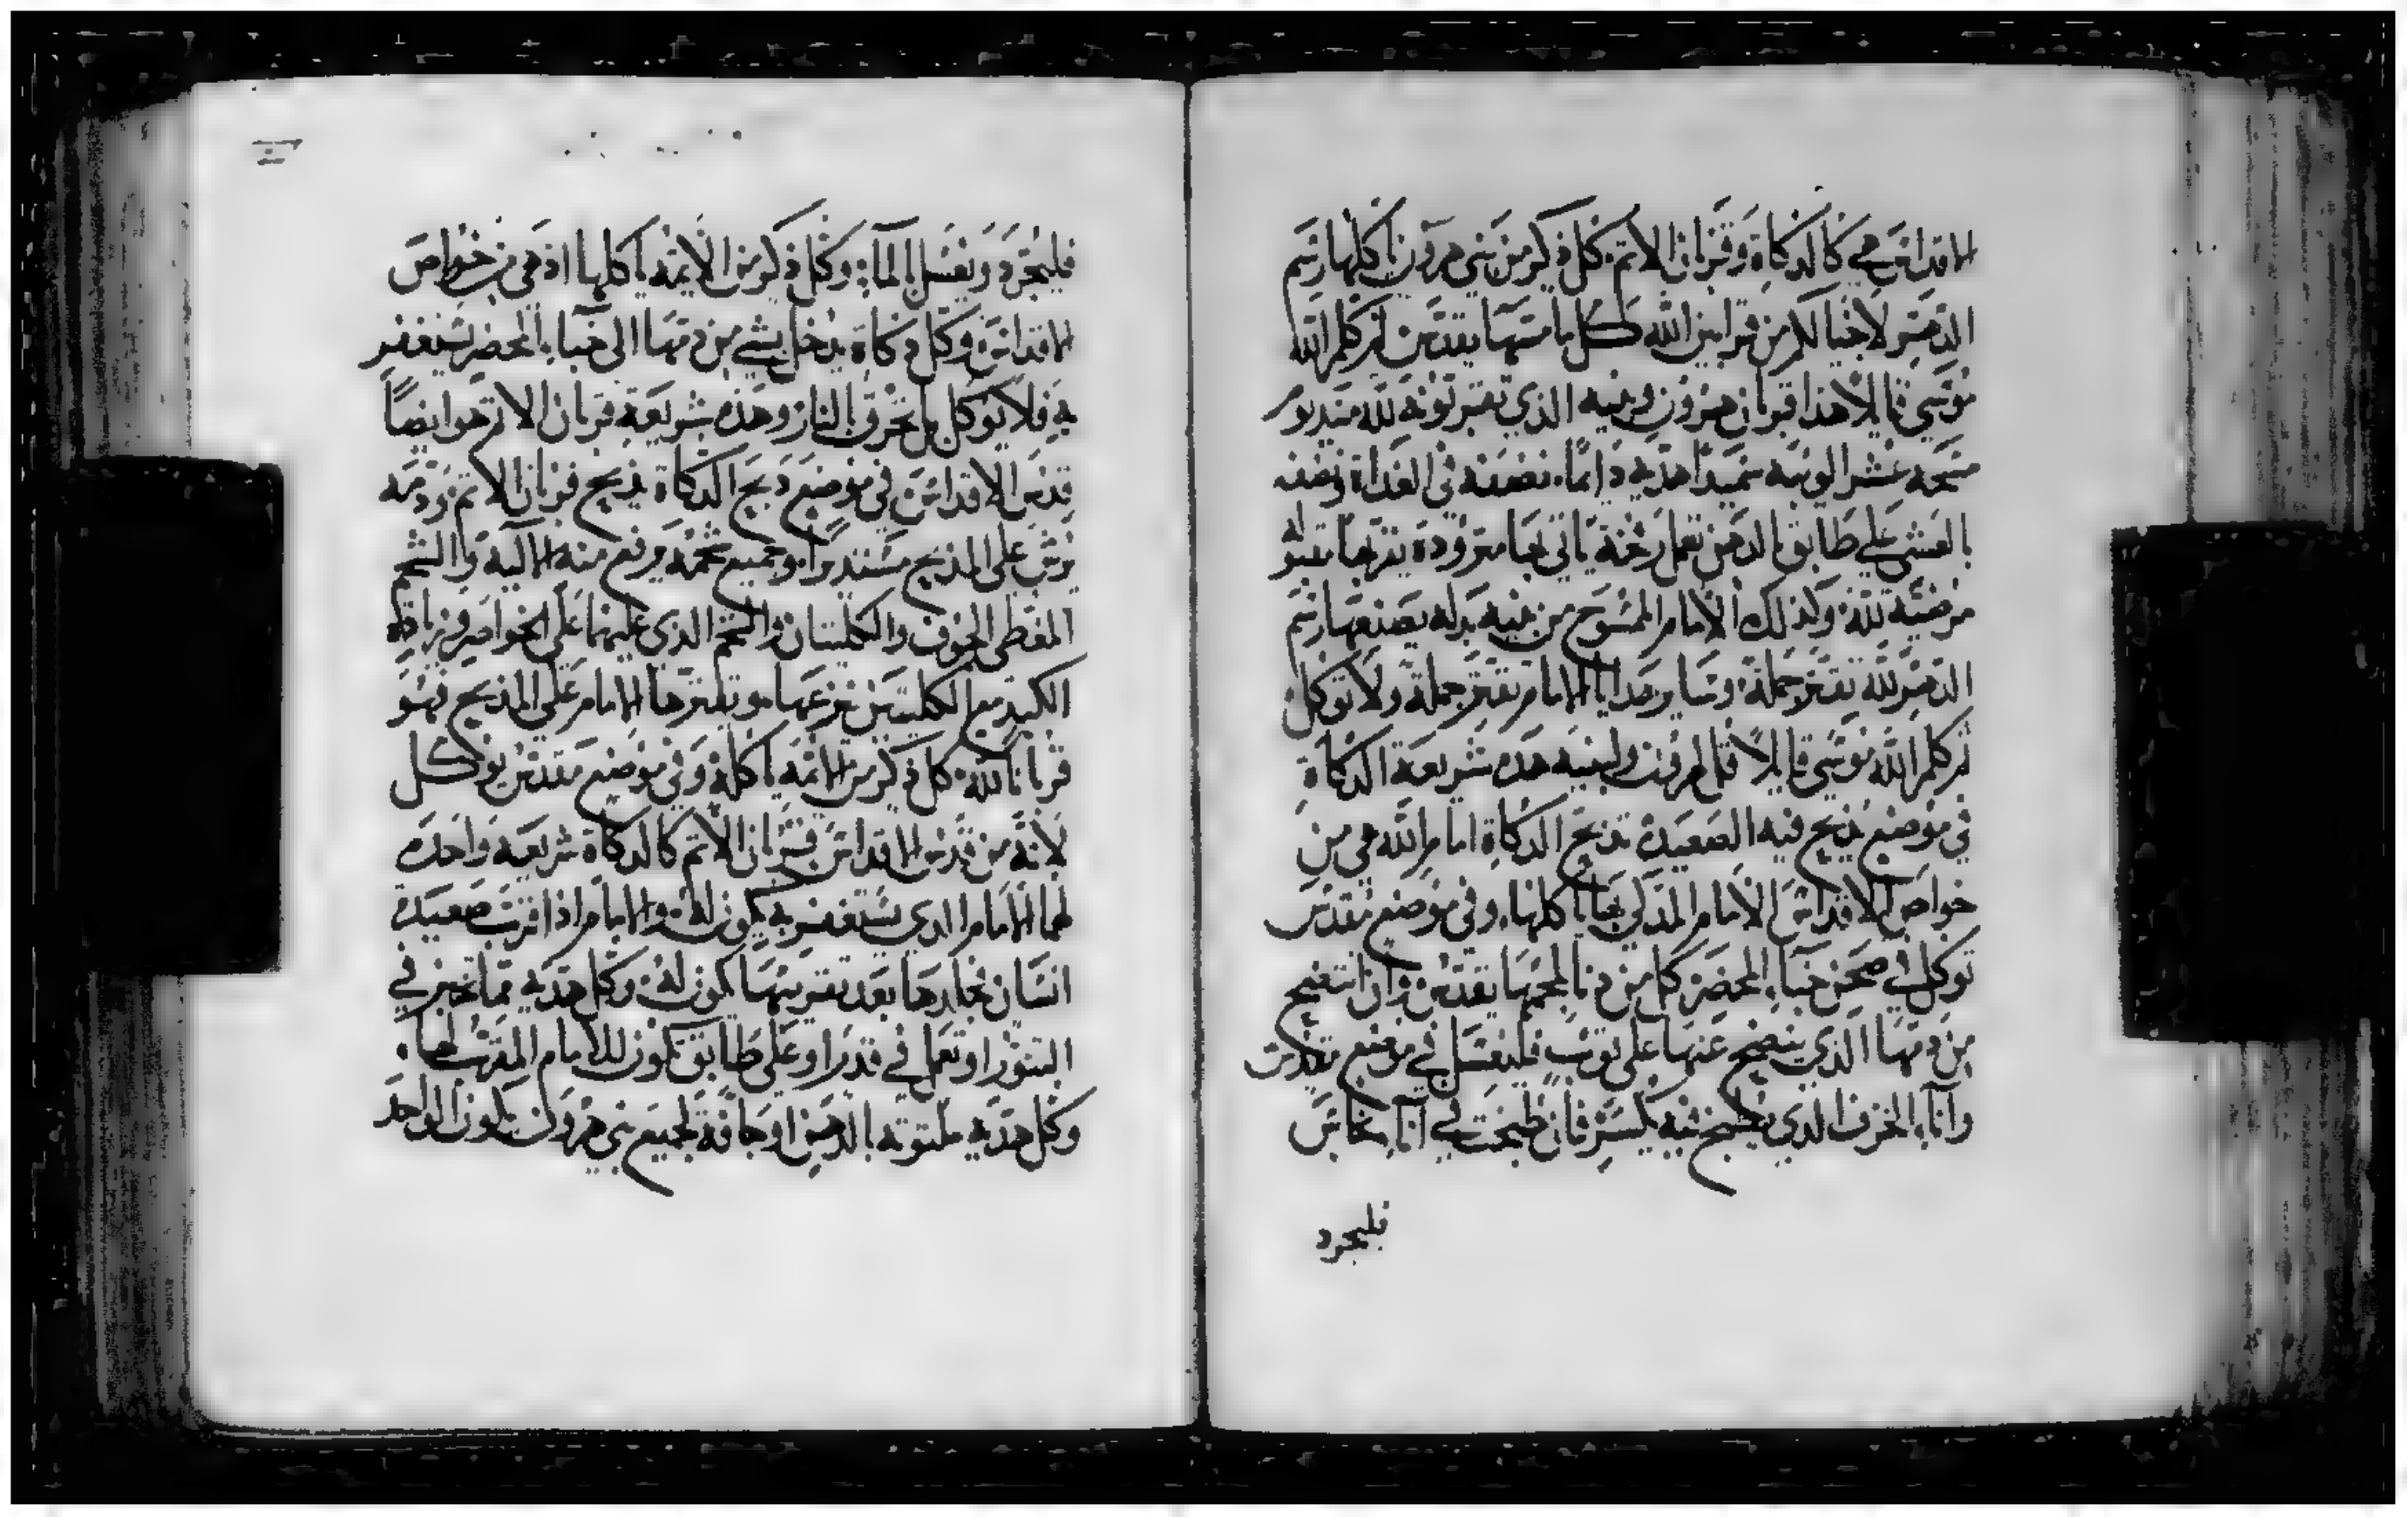 الاقداس هي كالدكاة وقربان الاتم كل ذكر من بني هرون ياكلها رسم
الدهر لاجيالكم من قرابين الله كل ما مسها يتقدس ثم كلم الله
موسي قايلا هذا قربان هرون وبنيه الذي تقربونه لله منذ يوم
مسحه عشر الويبه سميدا هديه دايما نصفه في الغداة ونصفه
بالعشي علي طابق بالدهن تعمل ياتي بها مترودة يقربها مقبوله
مرضيه لله وكذلك الامام الممسوح من بنيه بدله يصنعها رسم
الدهر لله تقتر جملة وساير هدايا الامام تقتر جملة ولا توكل
ثم كلم الله موسي قايلا قل لهرون ولبنيه هذه شريعة الدكاة
في موضع يذبح فيه الصعيدة تذبح الدكاة امام الله هي من
خواص الاقداس الامام المذكي بها ياكلها وفي موضع مقدس
توكل في صحن خباء المحضر كل من دنا بلحمها يتقدس وان انتضح
من دمها الذي ينضح عنها علي ثوب فليغسل في موضع مقدس
واناء الخزف الذي يطبخ فيه يكسر فان طبخت في اناء نحاس
فليجرد
فليجرد ويغسل بالماء وكل ذكر من الائمه ياكلها اذ هي من خواص
الاقداس وكل دكاة يدخل بشي من دمها الى خباء المحضر يستغفر
به فلا يوكل بل تحرق بالنار وهذه شريعة قربان الاتم هو ايضاً
قدس الاقداس في موضع ذبح الدكاة يذبح قربان الاتم ودمه
يرش علي المذبح مستديرا وجميع شحمه يرفع منه الاليه والشحم
المغطي الجوف والكليتان والشحم الذي عليهما علي الخواصر وزيادة
الكبد مع الكليتين ينزعها ويقترها الامام علي المذبح فهو
قربانا لله كل ذكر من الائمه ياكله وفي موضع مقدس يوكل
لانه من قدس الاقداس قربان الاتم كالدكاة شريعه واحده
لهما الامام الذي يستغفر به يكون له والامام اذا قرب صعيدة
انسان فجلدها بعد تقريبها يكون له وكل هديه مما تخبز في
التنور او تعمل في قدر او علي طابق تكون للامام المقرب لها
وكل هديه ملتوته بالدهن او جافة لجميع بني هرون يكون الواحد